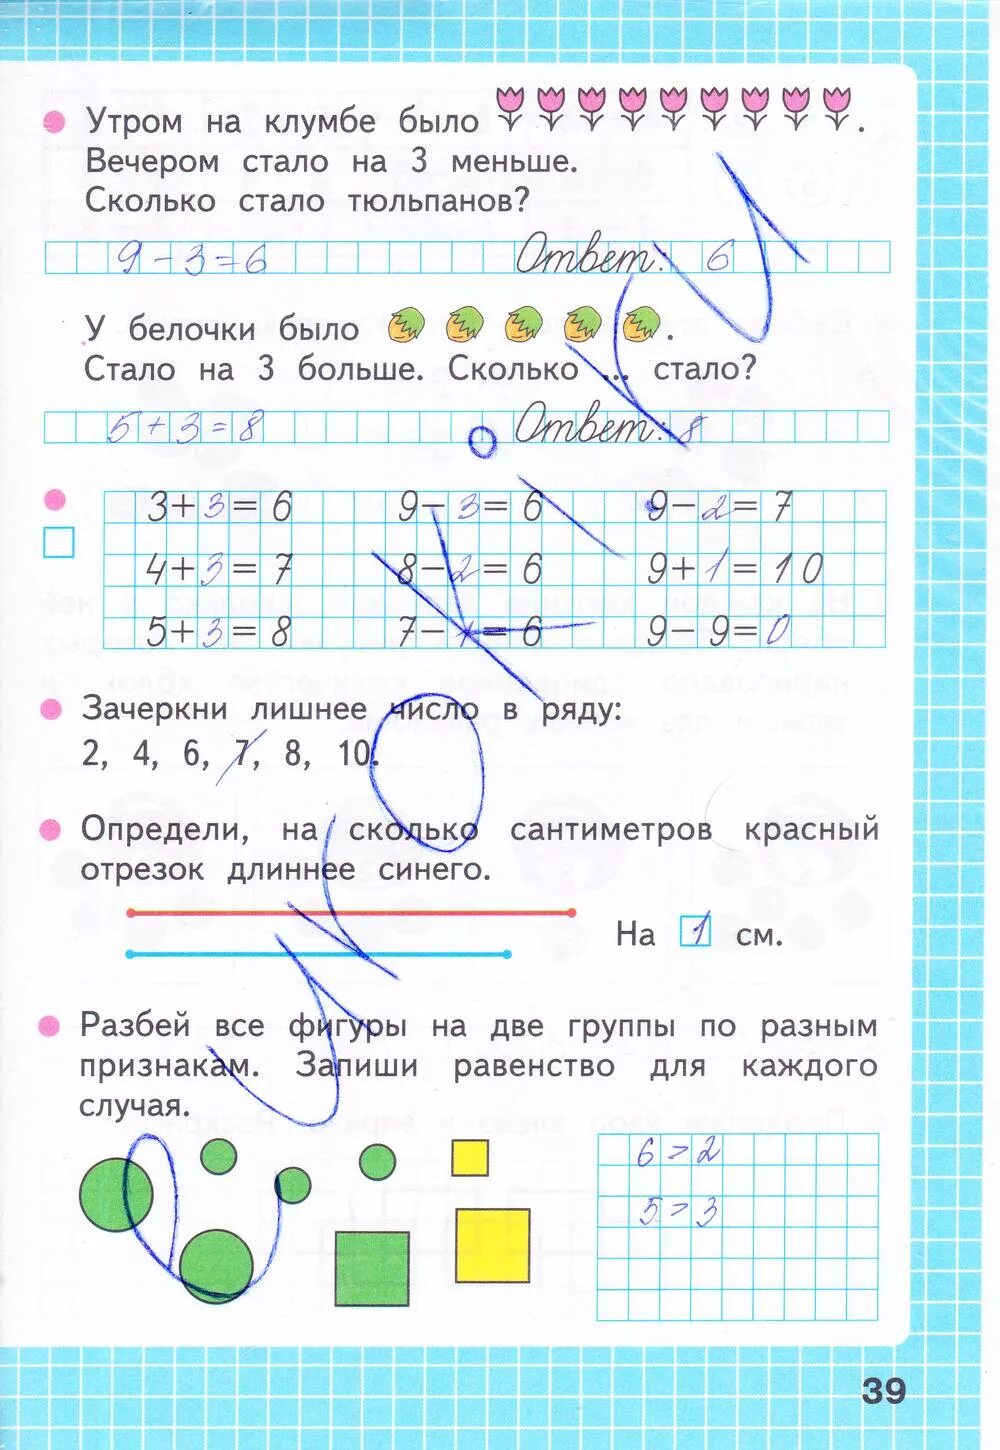 Утром на клумбе было .
Вечером стало на 3 меньше.
Сколько стало тюльпанов?
9-3=6 Ответ: 6
У белочки было .
Стало на 3 больше. Сколько ... стало?
5+3=8 Ответ: 8
3+3=6 9-3=6 9-2=7
4+3=7 8-2=6 9+1=10
5+3=8 7-1=6 9-9=0
Зачеркни лишнее число в ряду:
2, 4, 6, 7, 8, 10.
Определи, на сколько сантиметров красный
отрезок длиннее синего.
На 1 см.
Разбей все фигуры на две группы по разным
признакам. Запиши равенство для каждого
случая.
6>2
5>3
39